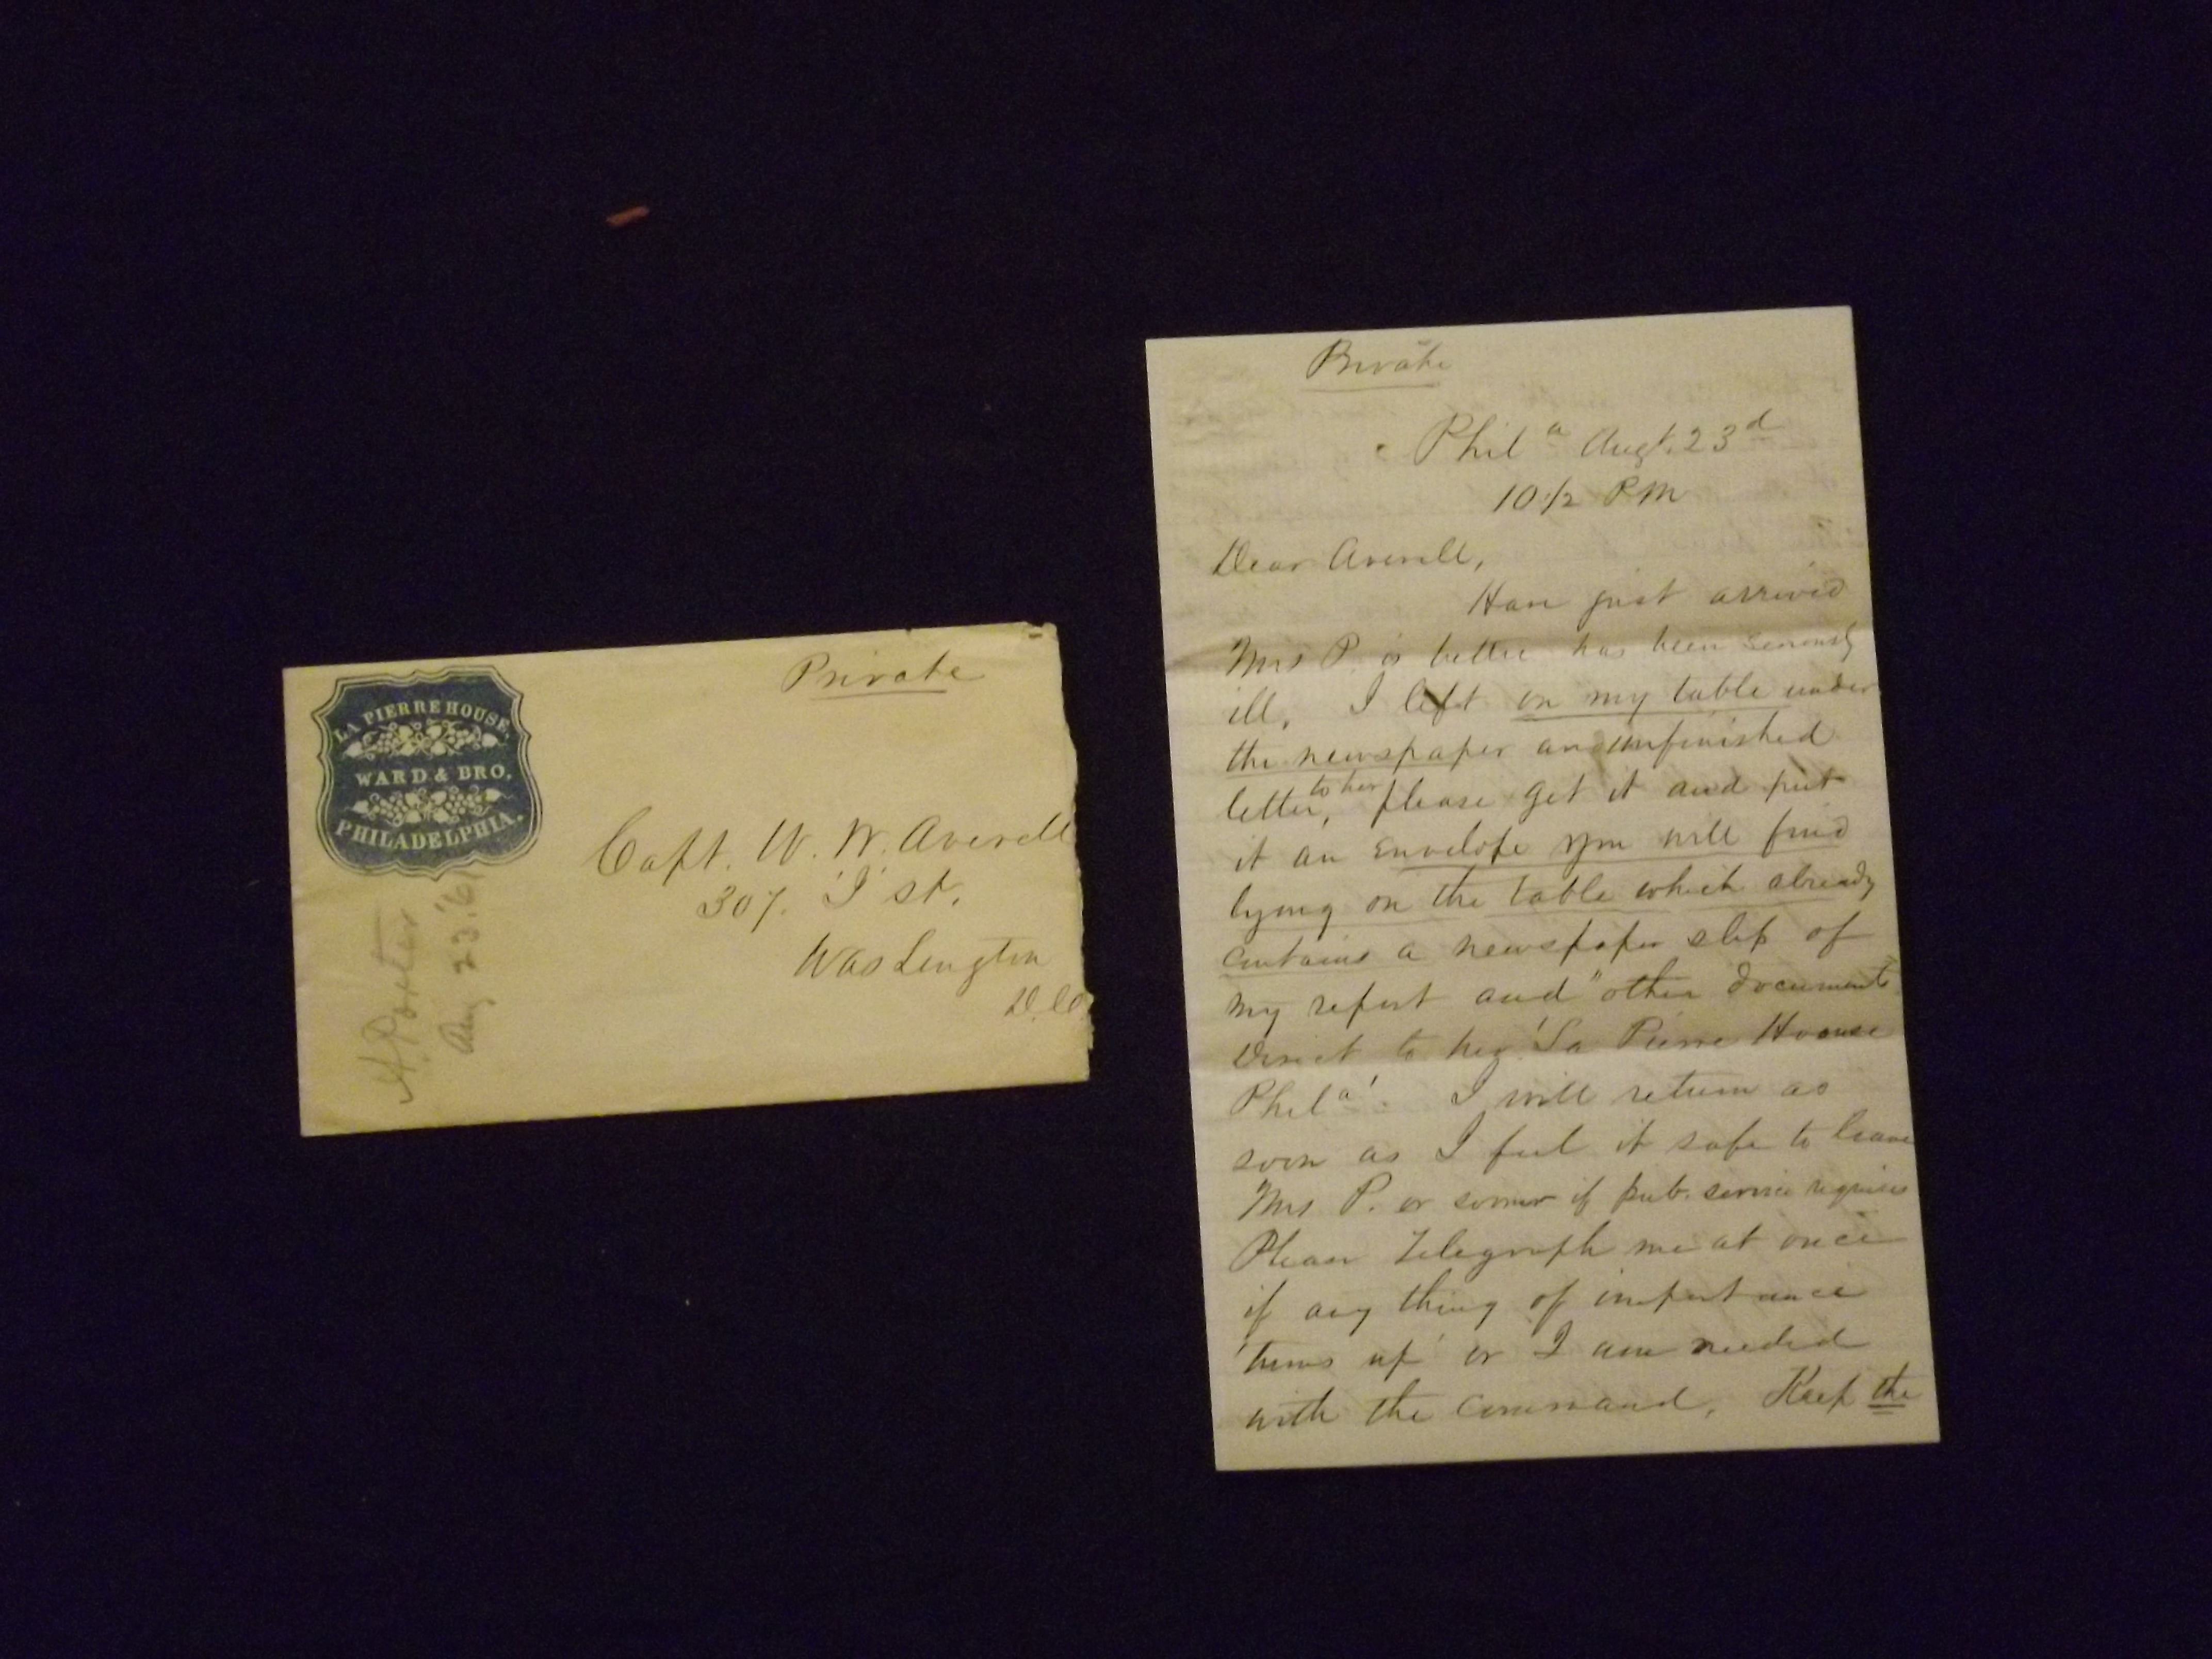 LA PIERRE HOUSE,
WARD & BRO.
PHILADELPHIA.
Private
Capt. W. W. Averell
307. 'I' st.
Washington
D.C.
A. Porter
Aug 23. '61
Private
Phil a Augt. 23d
10 1/2 PM
Dear Averell,
Have just arrived
Mrs P. is better has been seriously
ill, I left on my table under
the newspaper an unfinished
letter, to her, please get it and put
it an Envelope you will find
lying on the table which already
contains a newspaper slip of
my report and "other documents
Direct to her 'La Pierre House
Phil a'. I will return as
soon as I feel it safe to leave
Mrs P. or sooner if pub. service requires
Please Telegraph me at once
if any thing of importance
'turns up' or I am needed
with the command, Keep the